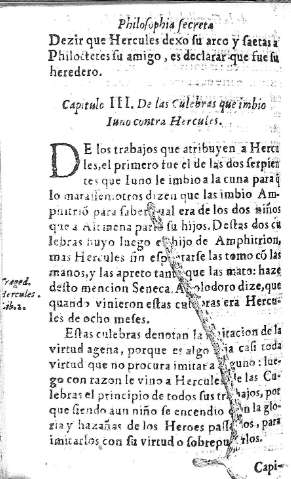 Philosophia secreta
Dezir que Hercules dexo su arco y saetas a
Philoctetes su amigo, es declarar que fue su
heredero.
Capitulo III. De las Culebras que imbio
Iuno contra Hercules.
DE los trabajos que atribuyen a Hercu
les, el primero fue el de las dos serpien
tes que Iuno le imbio a la cuna para q̃
lo matassen: otros dizen que las imbio Am-
phitriõ para saber qual era de los dos niños
que a Alcmena pario su hijos. Destas dos cu
lebras huyo luego el hijo de Amphitrion,
mas Hercules sin espantarse las tomo cõ las
manos, y las apreto tanto que las mato: haze
desto mencion Seneca. Apolodoro dize, que
quando vinieron estas culebras era Hercu-
les de ocho meses.
Traged.
Hercules.
Estas culebras denotan la imitacion de la
virtud agena, porque es algo casi toda
virtud que no procura imitar a alguno: lue-
go con razon le vino a Hercules de las Cu-
lebras el principio de todos sus trabajos, por
que siendo aun niño se encendio en la glo-
ria y hazañas de los Heroes passados, para
imitarlos con su virtud o sobrepujarlos.
Capi-